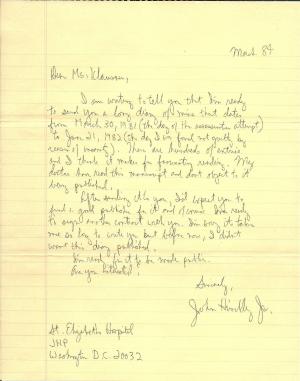 March 84
Dear Ms. Klausner,
I am writing to tell you that I'm ready
to send you a long diary of mine that dates
from March 30, 1981 (the day of the assassination attempt)
to June 21, 1982 (the day I'm found not guilty by
reason of insanity). There are hundreds of entries
and I think it makes for fascinating reading. My
doctors have read this manuscript and don't object to it
being published.
After sending it to you, I'd expect you to
find a good publisher for it and of course I'm ready
to sign another contract with you. I'm sorry it's taken
me so long to write you but before now, I didn't
want this diary published.
I'm ready for it to be made public.
Are you interested?
Sincerely,
John Hinckley Jr.
St. Elizabeths Hospital
JHP
Washington D.C. 20032